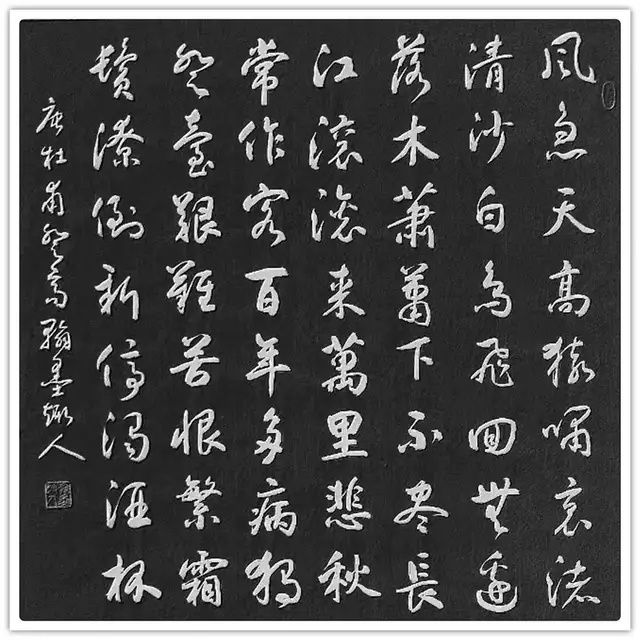 風急天高猿嘯哀渚
清沙白鳥飛回無邊
落木蕭蕭下不盡長
江滾滾来萬里悲秋
常作客百年多病獨
登臺艱難苦恨繁霜
鬢潦倒新停濁酒杯
唐杜甫登高翰墨趣人